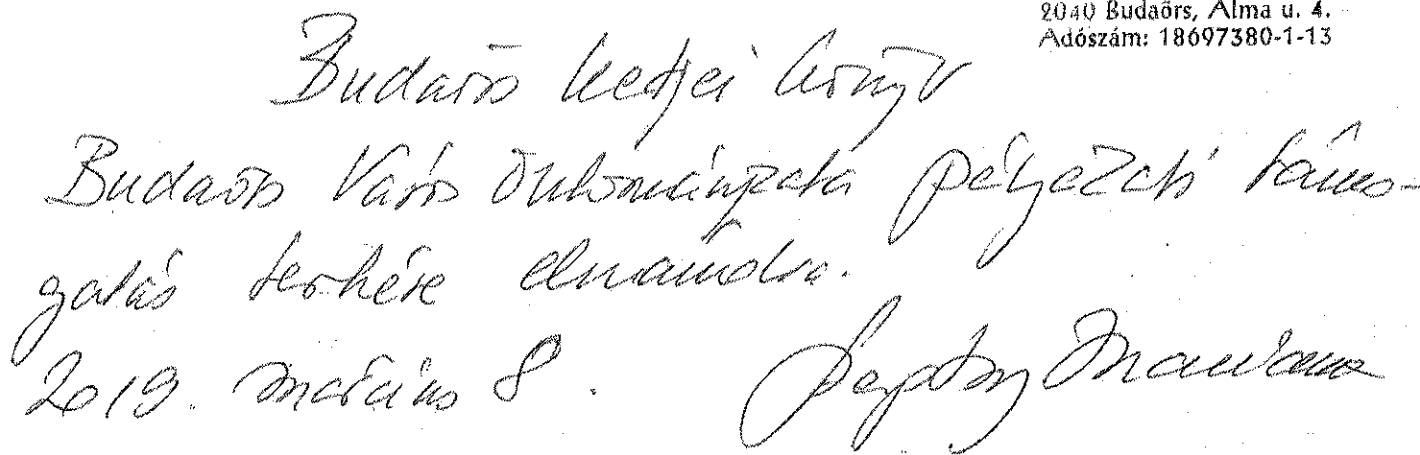 2040 Budaörs, Alma u. 4.
Adószám: 18697380-1-13
Budaörs kertjei könyv
Budaörs Város Önkormányzata pályázati támo-
gatás terhére elszámolva.
2019. március 8.